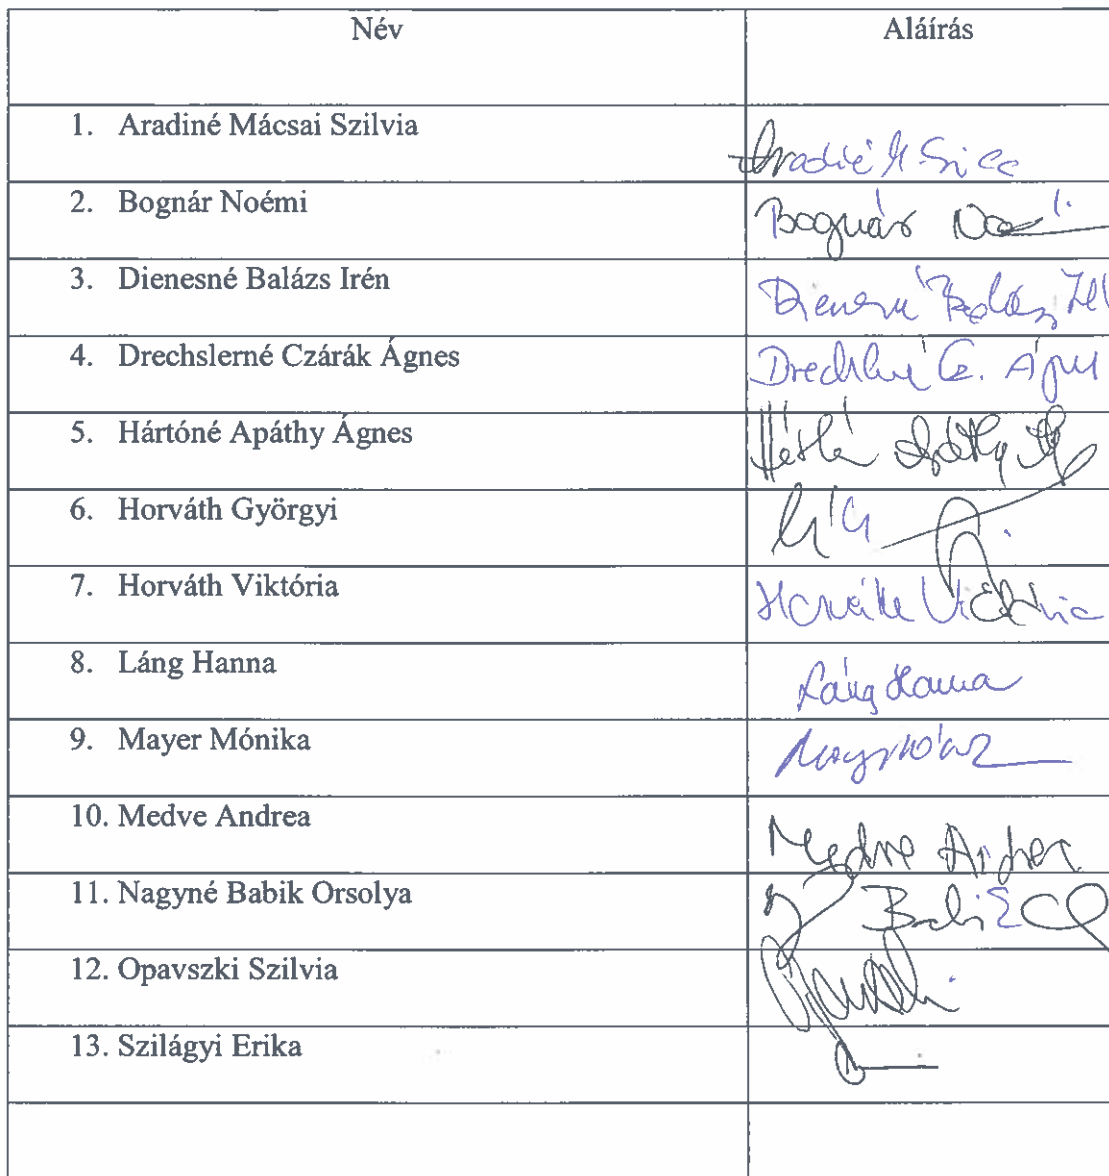 Név Aláírás
1. Aradiné Mácsai Szilvia Aradiné M. Szilvia
2. Bognár Noémi Bognár Noémi
3. Dienesné Balázs Irén Dienesné Balázs
4. Drechslerné Czárák Ágnes Drechslerné Cz. Ágnes
5. Hártóné Apáthy Ágnes
6. Horváth Györgyi
7. Horváth Viktória Horváth Viktória
8. Láng Hanna Láng Hanna
9. Mayer Mónika
10. Medve Andrea Medve Andrea
11. Nagyné Babik Orsolya
12. Opavszki Szilvia
13. Szilágyi Erika